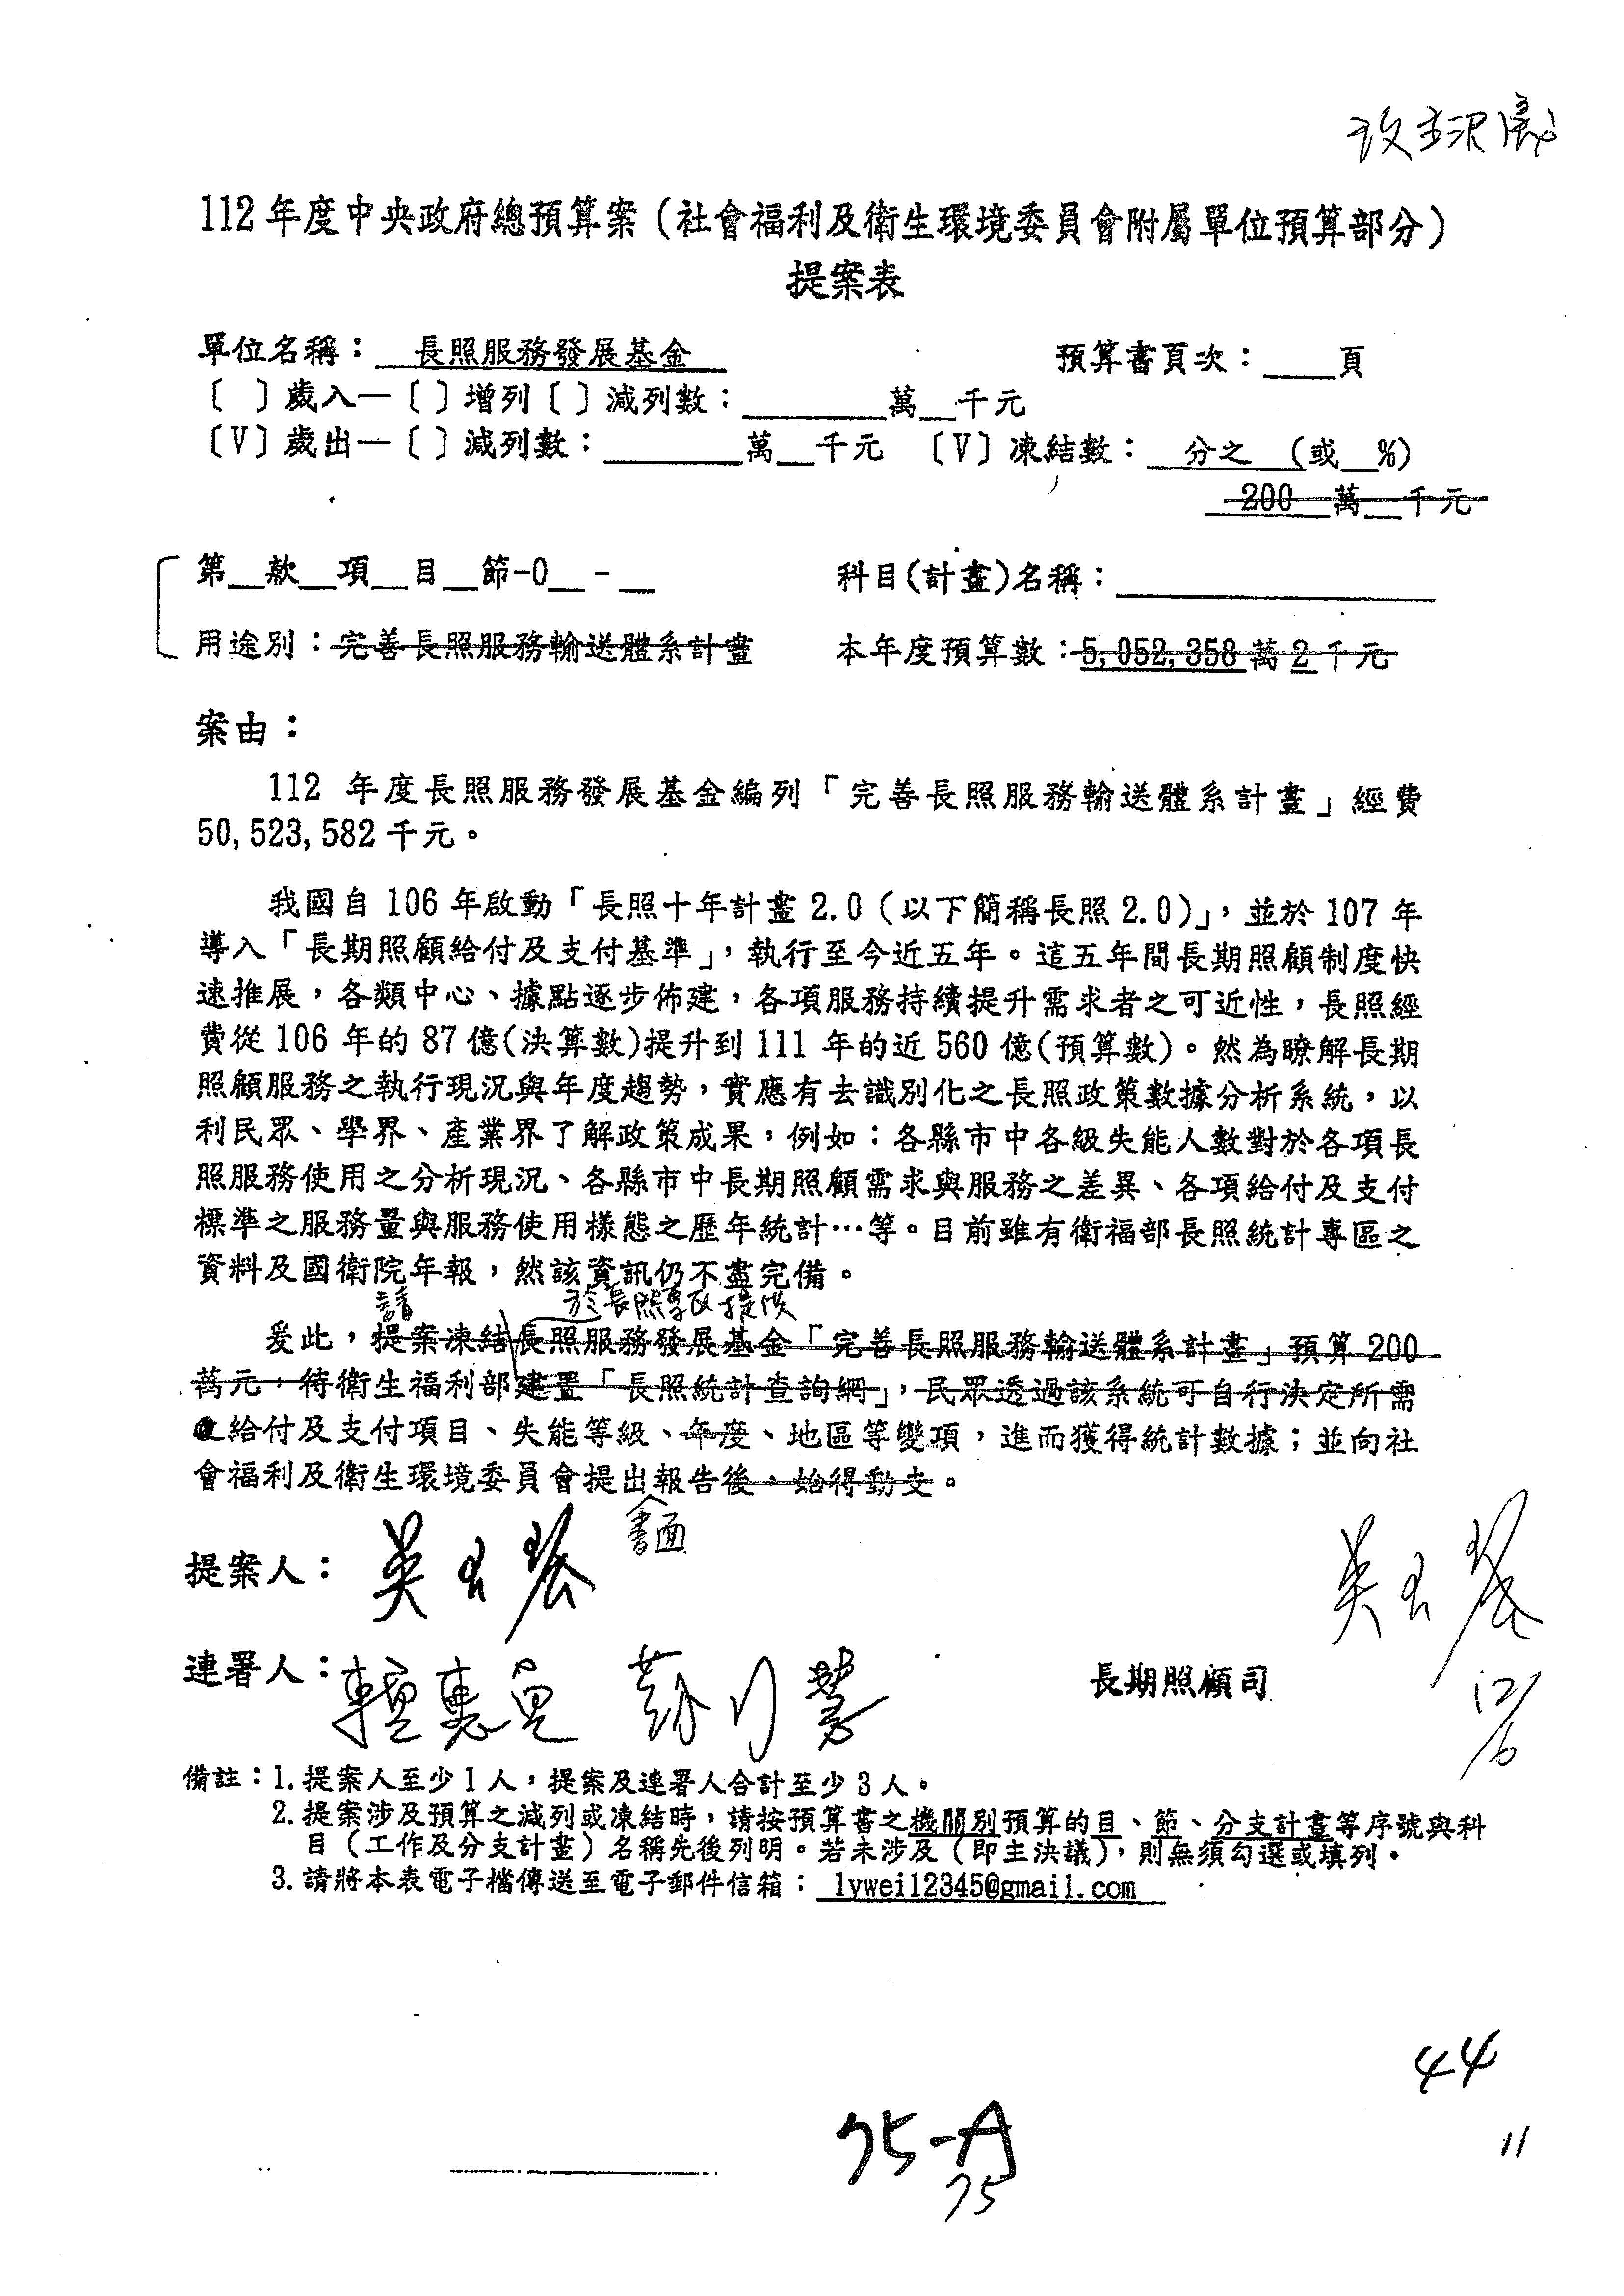 改主決議
112年度中央政府總預算案（社會福利及衛生環境委員會附屬單位預算部分）
提案表
單位名稱：長照服務發展基金 預算書頁次：____頁
〔 〕歲入—〔 〕增列〔 〕減列數：________萬__千元
〔V〕歲出—〔 〕減列數：________萬__千元 〔V〕凍結數： 分之 （或__%）
200 萬__千元
第__款__項__目__節-0__-__ 科目(計畫)名稱：________
用途別：完善長照服務輸送體系計畫 本年度預算數：5,052,358萬2千元
案由：
112 年度長照服務發展基金編列「完善長照服務輸送體系計畫」經費
50,523,582千元。
我國自106年啟動「長照十年計畫2.0（以下簡稱長照2.0）」，並於107年
導入「長期照顧給付及支付基準」，執行至今近五年。這五年間長期照顧制度快
速推展，各類中心、據點逐步佈建，各項服務持續提升需求者之可近性，長照經
費從106年的87億(決算數)提升到111年的近560億(預算數)。然為瞭解長期
照顧服務之執行現況與年度趨勢，實應有去識別化之長照政策數據分析系統，以
利民眾、學界、產業界了解政策成果，例如：各縣市中各級失能人數對於各項長
照服務使用之分析現況、各縣市中長期照顧需求與服務之差異、各項給付及支付
標準之服務量與服務使用樣態之歷年統計…等。目前雖有衛福部長照統計專區之
資料及國衛院年報，然該資訊仍不盡完備。
請 於長照專區提供
爰此，提案凍結長照服務發展基金「完善長照服務輸送體系計畫」預算200
萬元，待衛生福利部建置「長照統計查詢網」，民眾透過該系統可自行決定所需
之給付及支付項目、失能等級、年度、地區等變項，進而獲得統計數據；並向社
會福利及衛生環境委員會提出報告後，始得動支。
書面
提案人：吳玉琴 吳玉琴
連署人： 蘇巧慧 長期照顧司
12/6
備註：1.提案人至少1人，提案及連署人合計至少3人。
2.提案涉及預算之減列或凍結時，請按預算書之機關別預算的目、節、分支計畫等序號與科
目（工作及分支計畫）名稱先後列明。若未涉及（即主決議），則無須勾選或填列。
3.請將本表電子檔傳送至電子郵件信箱：lywei12345@gmail.com
44
75-A
11
75